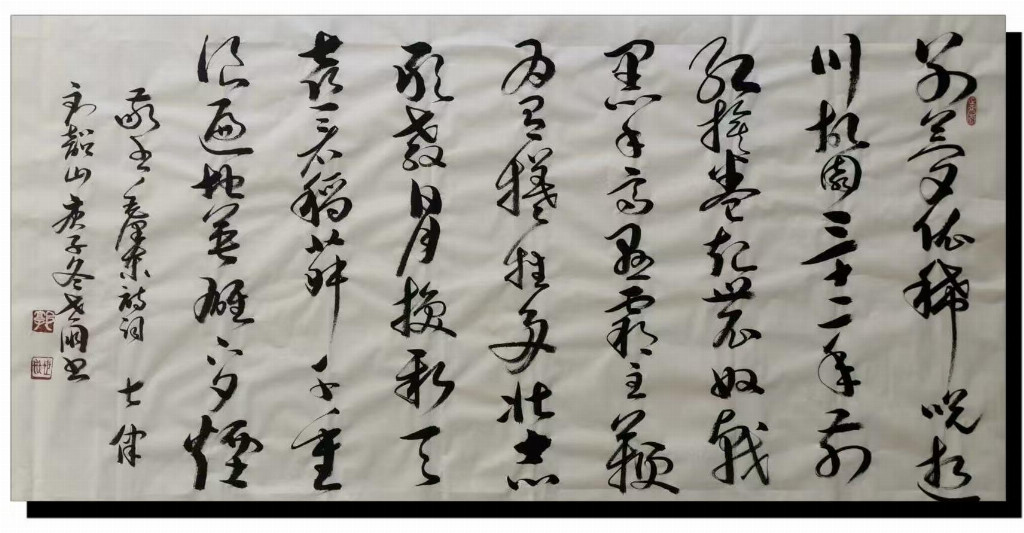 别夢依稀咒逝
川故園三十二年前
紅旗卷起農奴戟
黑手高懸霸主鞭
为有犧牲多壮志
敢教日月换新天
喜看稻菽千重
浪遍地英雄下夕煙
敬书毛澤東詩词 七律
到韶山 庚子冬 书